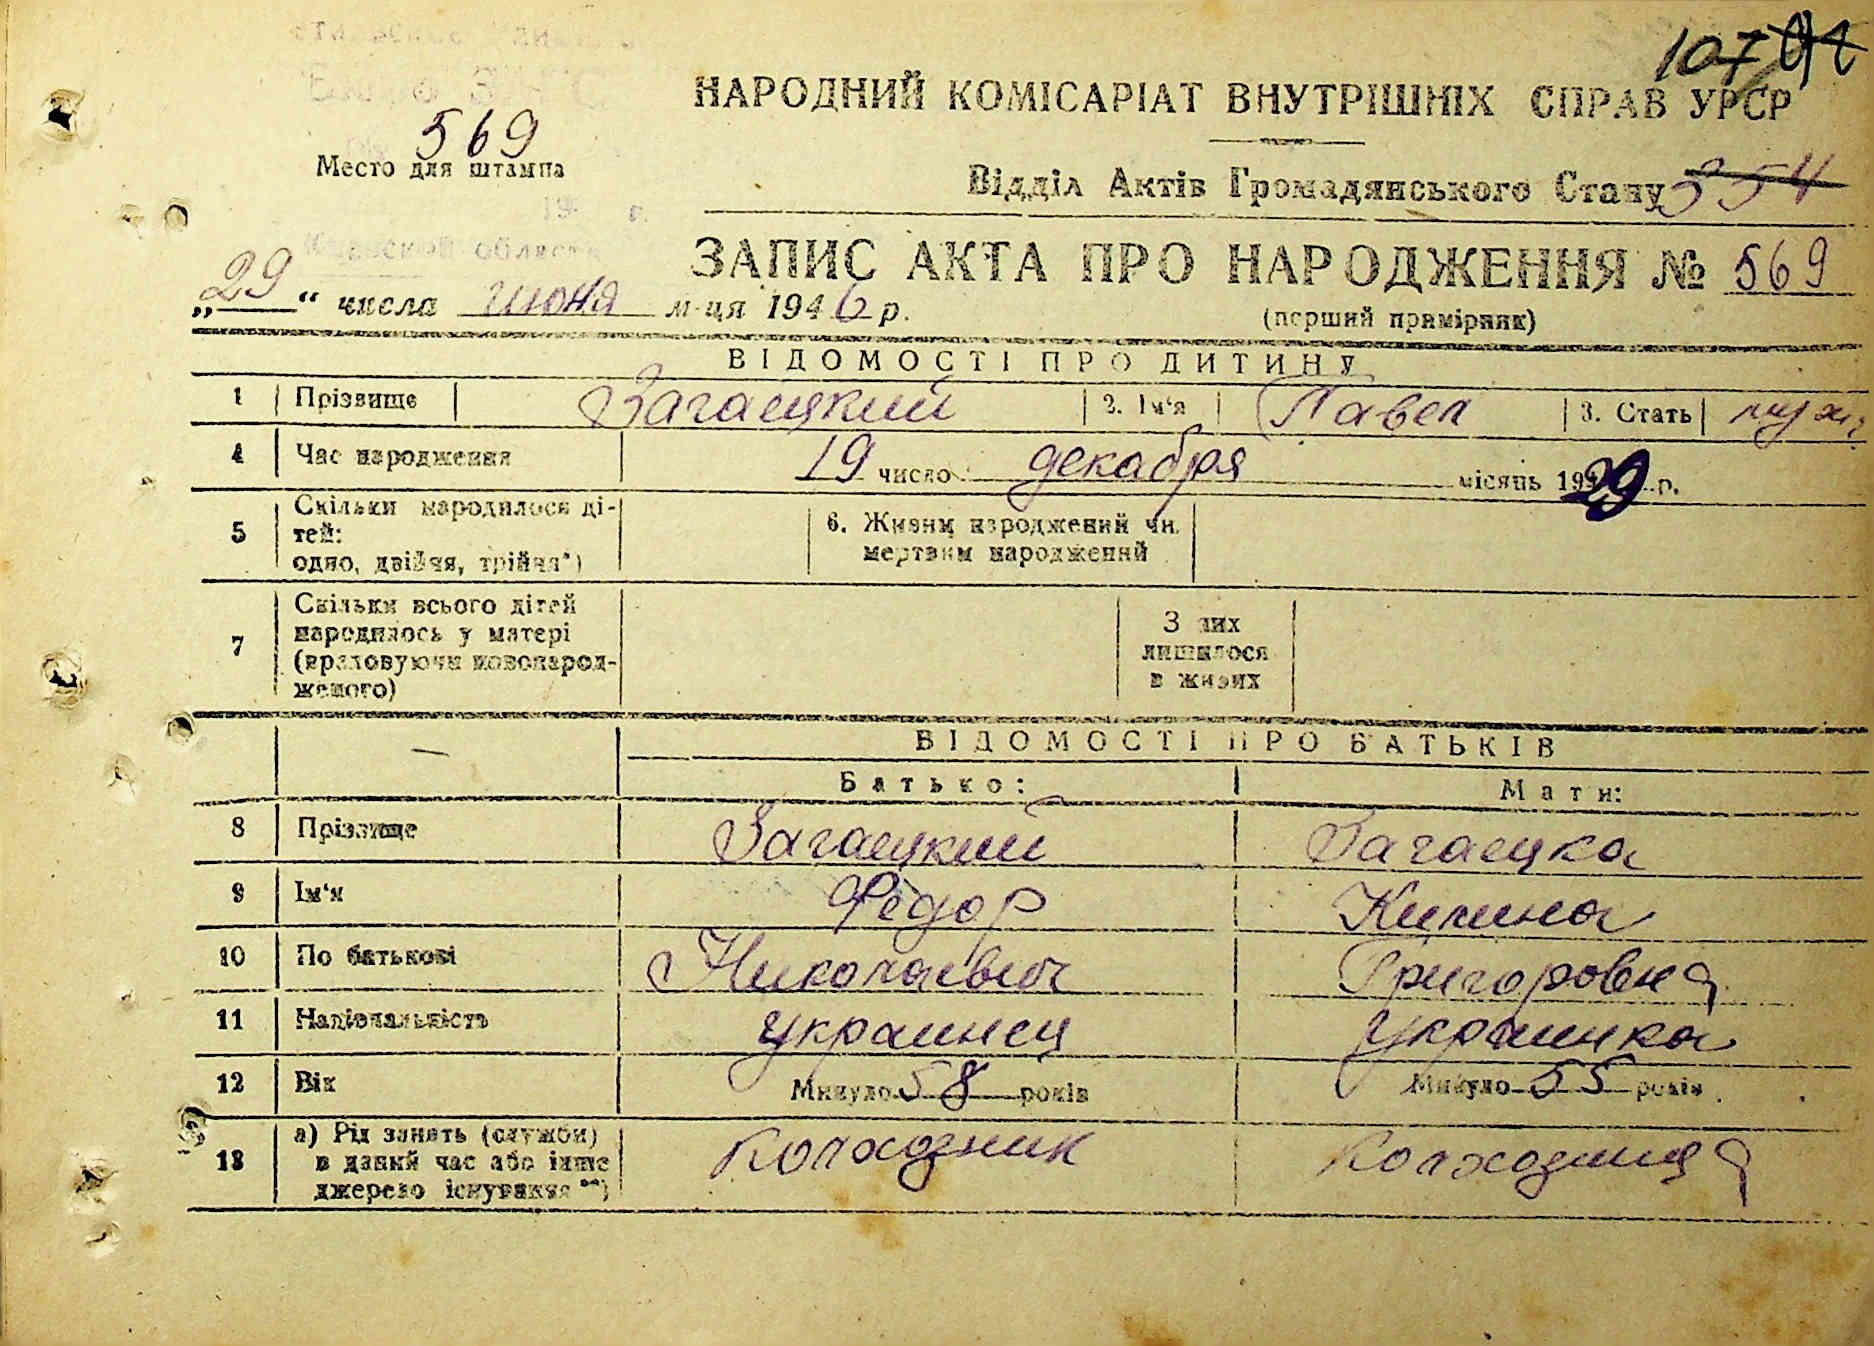 107
НАРОДНИЙ КОМІСАРІАТ ВНУТРІШНІХ СПРАВ УРСР
569
Место для штампа
Відділ Актів Громадянського Стану 354
ЗАПИС АКТА ПРО НАРОДЖЕННЯ № 569
„29“ числа июня м-ця 1946 р.
(перший примірник)
ВІДОМОСТІ ПРО ДИТИНУ
1 Прізвище Загаецкий 2. Ім'я Павел 3. Стать муж.
4 Час народження 19 число декабря місяць 1929 р.
5 Скільки народилося ді-
тей:
одно, двійня, трійня*)
6. Живим народжений чи
мертвим народжений
7 Скільки всього дітей
народилось у матері
(враховуючи новонарод-
женого)
З них
лишилося
в живих
ВІДОМОСТІ ПРО БАТЬКІВ
Батько: Мати:
8 Прізвище Загаецкий Загаецка
9 Ім'я Федор Килина
10 По батькові Николаевич Григоровна
11 Національність украинец украинка
12 Вік Минуло 58 років Минуло 55 років
13 а) Рід занять (служби)
в даний час або інше
джерело існування**)
Колхозник Колхозница